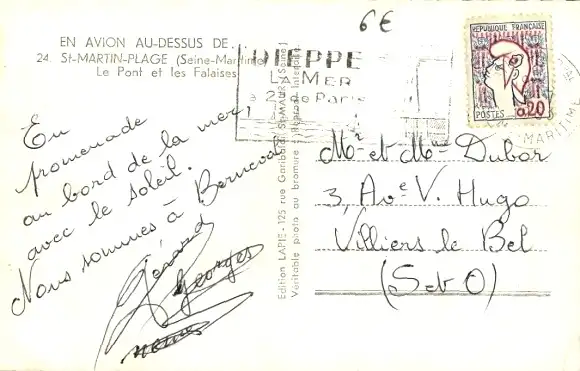 6€
EN AVION AU-DESSUS DE...
24. St-MARTIN-PLAGE (Seine-Maritime)
Le Pont et les Falaises
DIEPPE
LA MER
à 2 de Paris
RÉPUBLIQUE FRANÇAISE
POSTES 0,20
MARITIME
En
promenade
au bord de la mer,
avec le soleil.
Nous sommes à Berneval
Gérard
Georges
Edition LAPIE - 125 rue Garibaldi St-MAUR (Seine)
Véritable photo au bromure - Reprod. Interdite
Mr et Mme Dubor
3, Ave V. Hugo
Villiers le Bel
(S et O)